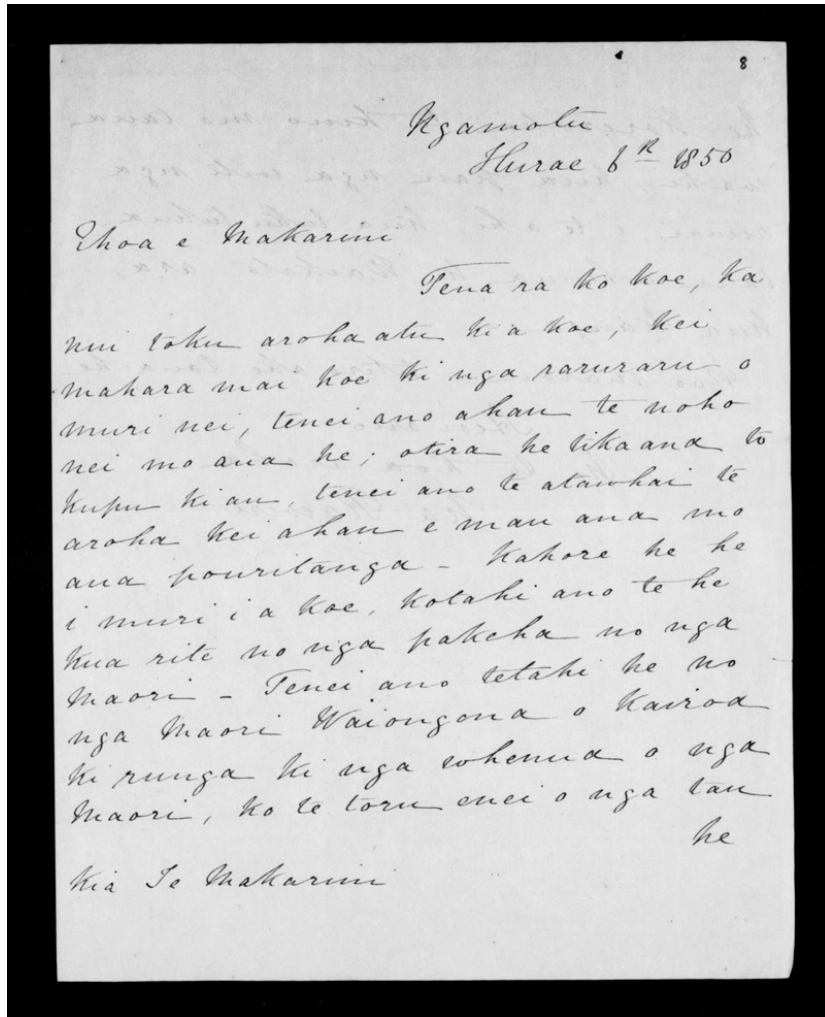 8
Ngamotu
Hurae 6th 1850
Ehoa e Makarini
Tena ra ko koe, ka
nui toku aroha atu ki a koe, kei
mahara mai koe ki nga raruraru o
muri nei, tenei ano ahau te noho
nei mo ana he; otira he tika ana to
kupu ki au, tenei ano te atawhai te
aroha kei ahau e mau ana mo
ana pouritanga - Kahore he he
i muri i a koe, kotahi ano te he
kua rite no nga pakeha no nga
Maori - Tenei ano tetahi he no
nga Maori Waiongona o Kairoa
ki runga ki nga whenua o nga
Maori, ko te toru enei o nga tau
he
Kia Te Makarini